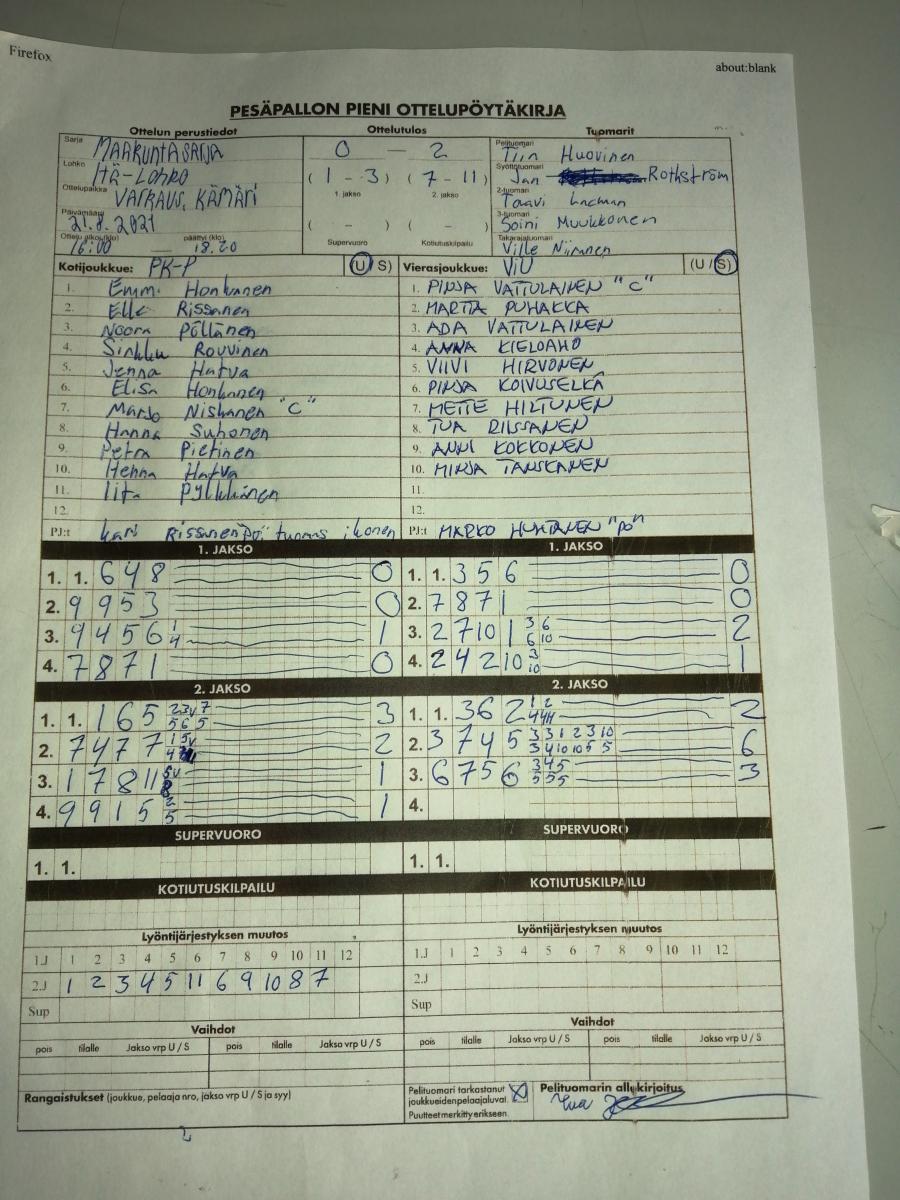 Firefox
about:blank
PESÄPALLON PIENI OTTELUPÖYTÄKIRJA
Ottelun perustiedot Ottelutulos Tuomarit
Sarja MAAKUNTASARJA 0 — 2 Pelituomari Tiin Huovinen
Lohko ITÄ-LOHKO (1 - 3) (7 - 11) Syöttötuomari Jan Rothström
1. jakso 2. jakso
Ottelupaikka VARKAUS, KÄMÄRI 2-tuomari Taavi
Päivämäärä 21.8.2021 ( - ) ( - ) 3-tuomari Soini Muukkonen
Ottelu alkoi (klo) 16:00 — päättyi (klo) 18.20 Supervuoro Kotiutuskilpailu Takarajatuomari Ville Niiranen
Kotijoukkue: PK-P (U / S) Vierasjoukkue: ViU (U / S)
1. Emmi Honkanen 1. PINJA VATTULAINEN "C"
2. Elle Rissanen 2. MARTTA PUHAKKA
3. Noora Pöllänen 3. ADA VATTULAINEN
4. Sinkku Rouvinen 4. ANNA KIELOAHO
5. Jenna Hatva 5. VIIVI HIRVONEN
6. Elisa Honkanen 6. PINJA KOIVUSELKÄ
7. Marjo Niskanen "C" 7. METTE HILTUNEN
8. Hanna Suhonen 8. TUA RISSANEN
9. Petra Pietinen 9. ANNI KOKKONEN
10. Henna Hatva 10. MINJA TANSKANEN
11. Iita Pylkkänen 11.
12. 12.
PJ:t Kari Rissanen "pö" tuomas ikonen PJ:t MARKO HUHTANEN "PÖ"
1. JAKSO 1. JAKSO
1. 1. 6 4 8 0 1. 1. 3 5 6 0
2. 9 9 5 3 0 2. 7 8 7 1 0
3. 9 4 5 6 1 4 1 3. 2 7 10 1 3 6 6 10 2
4. 7 8 7 1 0 4. 2 4 2 10 3 10 1
2. JAKSO 2. JAKSO
1. 1. 1 6 5 2 3 v 7 5 6 5 3 1. 1. 3 6 2 1 2 2
2. 7 4 7 7 1 5v 2 2. 3 7 4 5 3 3 1 2 3 10 3 4 10 10 5 5 6
3. 1 7 8 11 5v 1 3. 6 7 5 6 3 4 5 5 5 5 3
4. 9 9 1 5 2 5 1 4.
SUPERVUORO SUPERVUORO
1. 1. 1. 1.
KOTIUTUSKILPAILU KOTIUTUSKILPAILU
Lyöntijärjestyksen muutos Lyöntijärjestyksen muutos
1.J 1 2 3 4 5 6 7 8 9 10 11 12 1.J 1 2 3 4 5 6 7 8 9 10 11 12
2.J 1 2 3 4 5 11 6 9 10 8 7 2.J
Sup Sup
Vaihdot Vaihdot
pois tilalle Jakso vrp U / S pois tilalle Jakso vrp U / S pois tilalle Jakso vrp U / S pois tilalle Jakso vrp U / S
Rangaistukset (joukkue, pelaaja nro, jakso vrp U / S ja syy) Pelituomari tarkastanut joukkueiden pelaajaluvat. Puutteet merkitty erikseen. Pelituomarin allekirjoitus